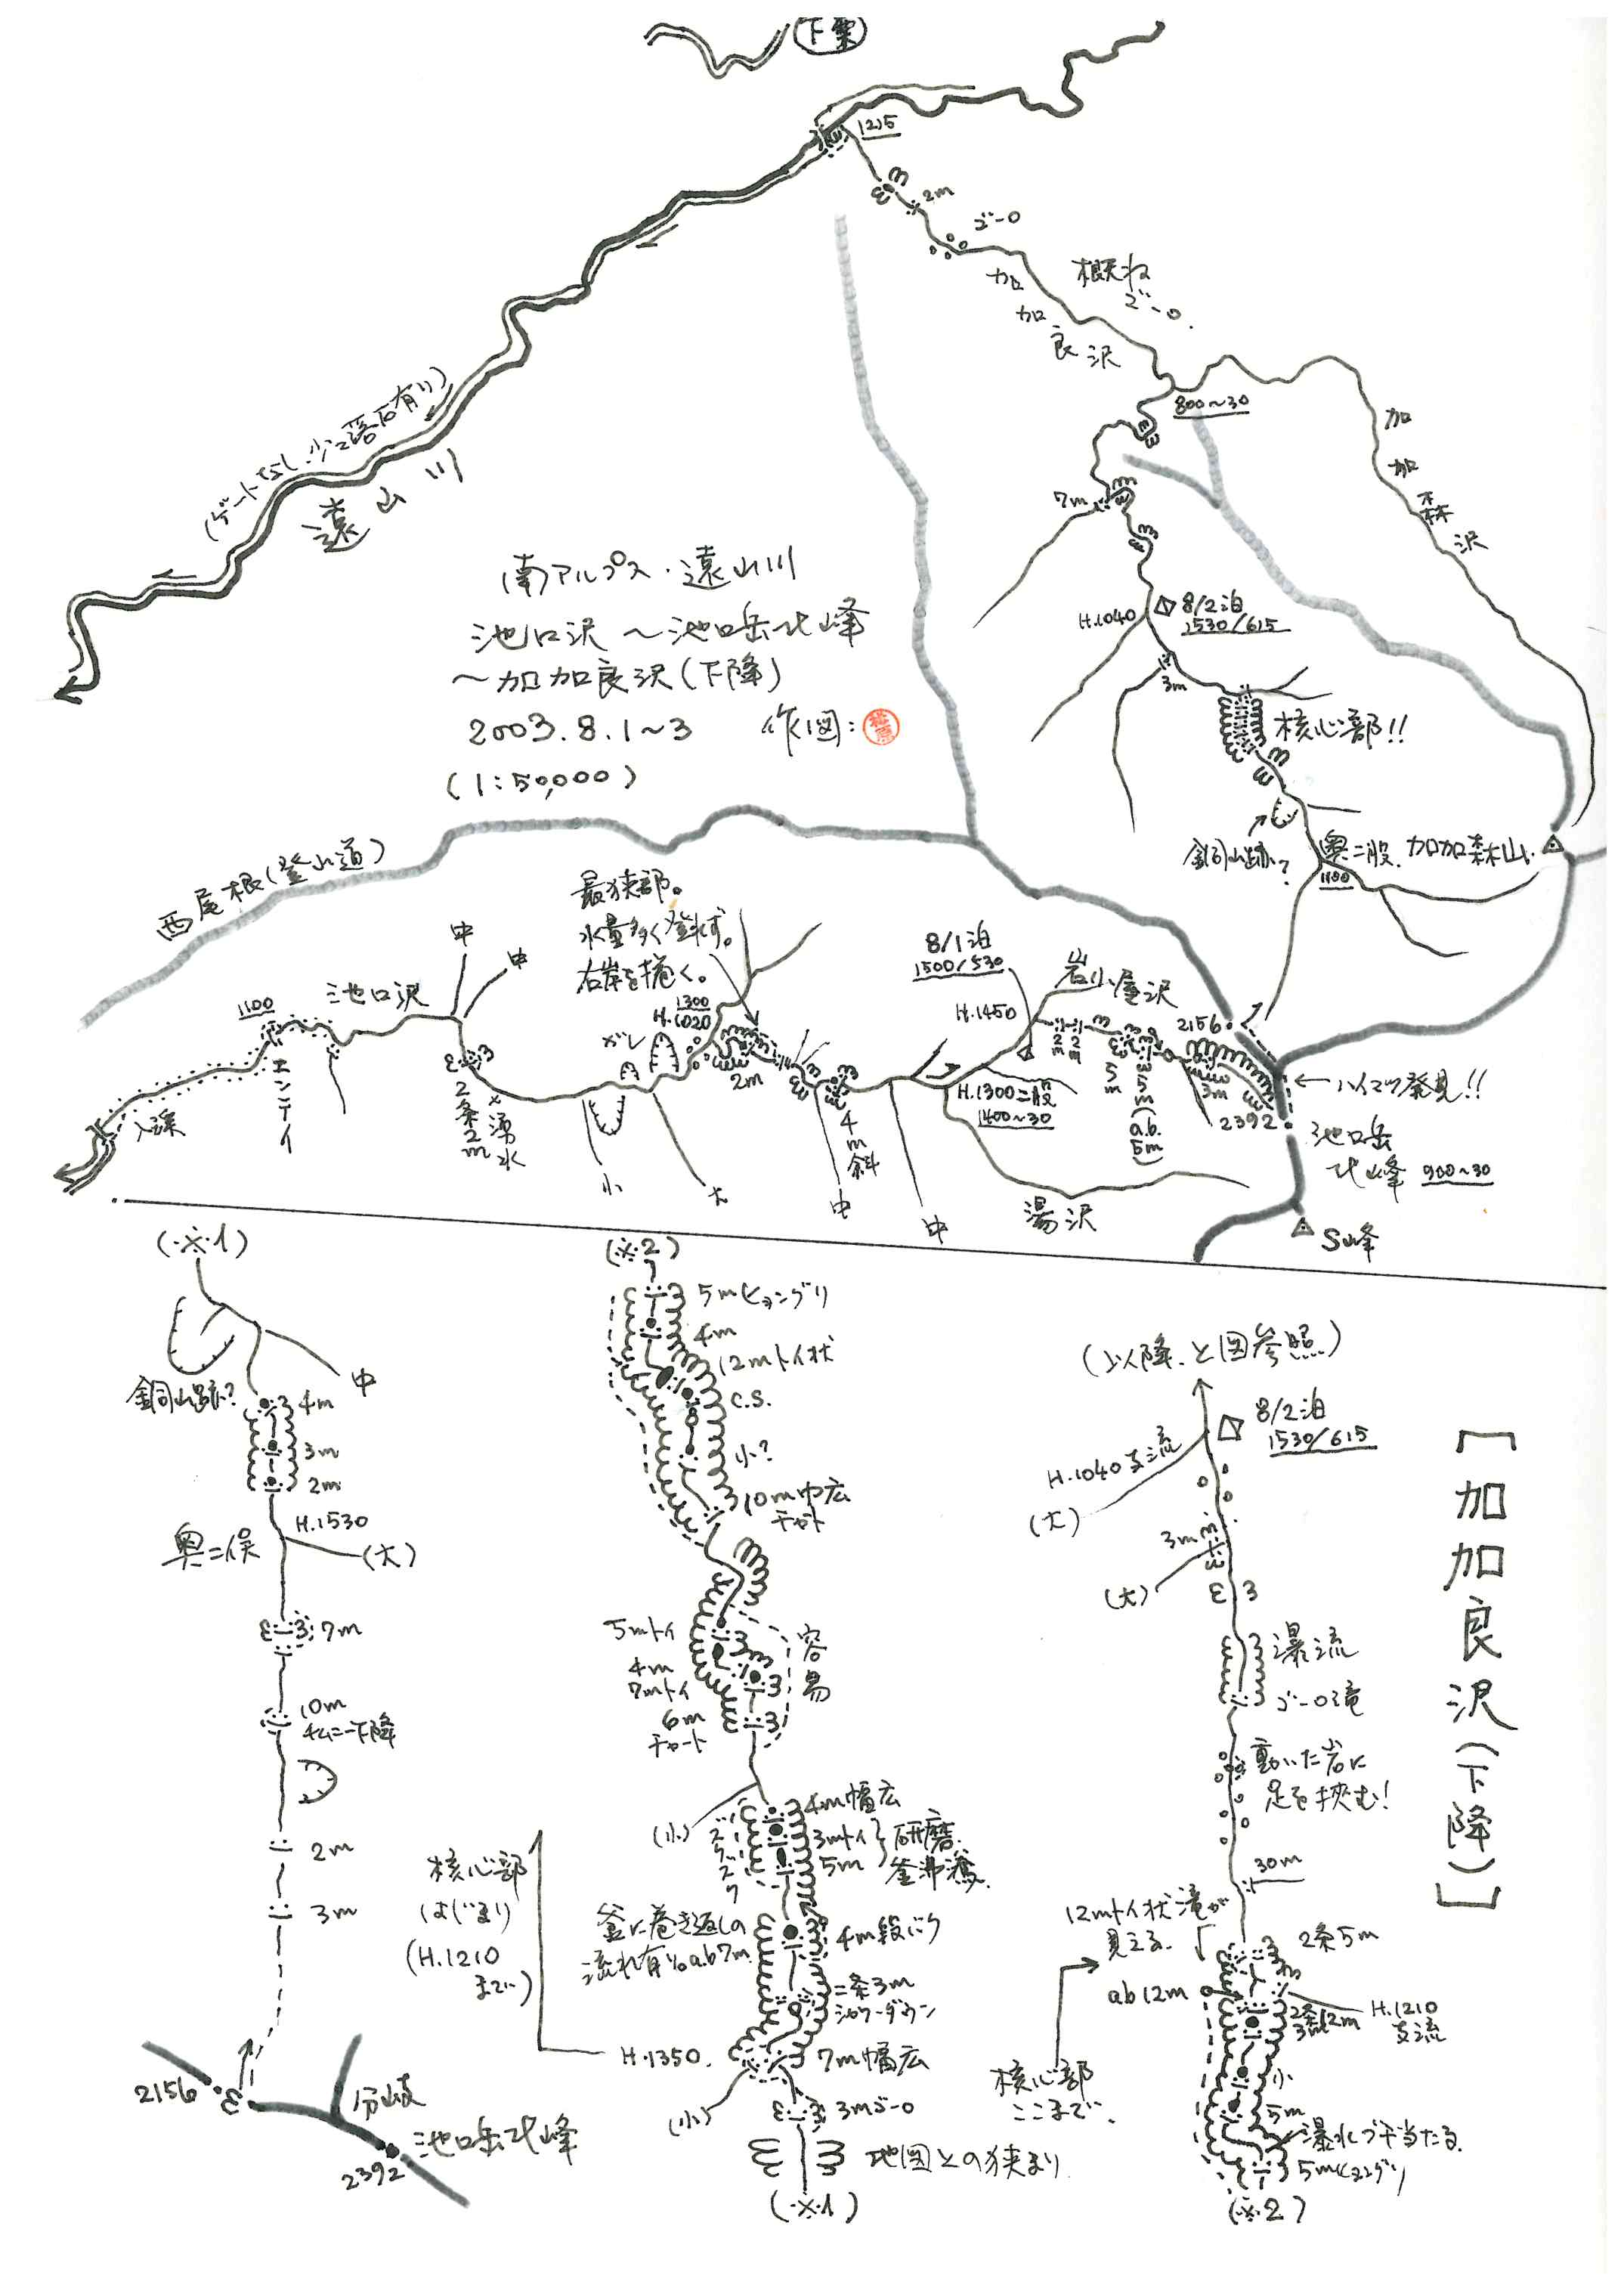 下栗
1215
2m
ゴーロ
概ね
ゴーロ.
加加良沢
800~30
加加森沢
(ゲートなし.少々落石有リ)
遠山川
7m
南アルプス・遠山川
池口沢 ~池口岳北峰
~加加良沢(下降)
2003.8.1~3 作図:
(1:50,000)
H.1040
8/2泊
1530/615
3m
核心部!!
銅山跡?
奥二股.
1100
加加森山
西尾根(登山道)
最狭部。
水量多く登れず。
右岸を捲く。
中
中
池口沢
1100
エンテイ
入渓
2条2m
湧水
ガレ
1300
H.1020
2m
小
大
4m斜
中
中
8/1泊
1500/530
H.1450
岩小屋沢
H.1300二股
1400~30
2m
2m
5m
35m(a.b.5m)
3m
2156
2392
←ハイマツ発見!!
池口岳
北峰 900~30
湯沢
S峰
(※1)
銅山跡?
中
4m
3m
2m
H.1530
奥二俣
(大)
7m
10m
チムニー下降
2m
3m
2156
分岐
池口岳北峰
2392
(※2)
5mヒョングリ
4m
12mトイ状
C.S.
小?
10m巾広
チャート
5mトイ
4m
7mトイ
6m
チャート
容易
(小)
4m幅広
3mトイ
5m
研磨.
釜沸騰.
核心部
はじまり
(H.1210
まで)
釜に巻き返しの
流れ有りa.b7m
4m段にり
二条3m
シャワーダウン
H.1350.
7m幅広
(小)
3mゴーロ
地図上の狭まり
(※1)
(以降.上図参照)
8/2泊
1530/615
H.1040支流
(大)
3m
(大)
瀑流
ゴーロ滝
動いた岩に
足を挟む!
30m
12mトイ状滝が
見える.
2条5m
ab12m
2条12m
3m
H.1210
支流
核心部
ここまで.
小
5m
瀑水ブチ当たる.
5mヒョングリ
(※2)
[加加良沢(下降)]